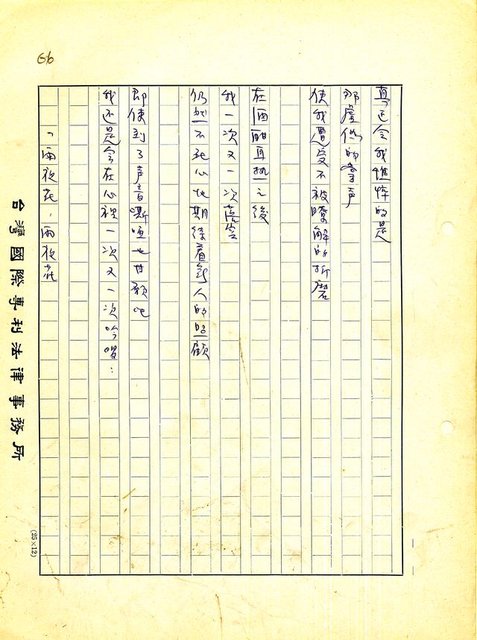 66
真正令我憔悴的是
那虛假的掌声
使我遭受不被瞭解的折磨
在酒酣耳热之後
我一次又一次落空
仍然不死心地期待着新人的照顧
即使到了声音嘶啞也甘願吧
我还是会在心裡一次又一次吟唱：
「雨夜花，雨夜花
(25×12)
台灣國際專利法律事務所